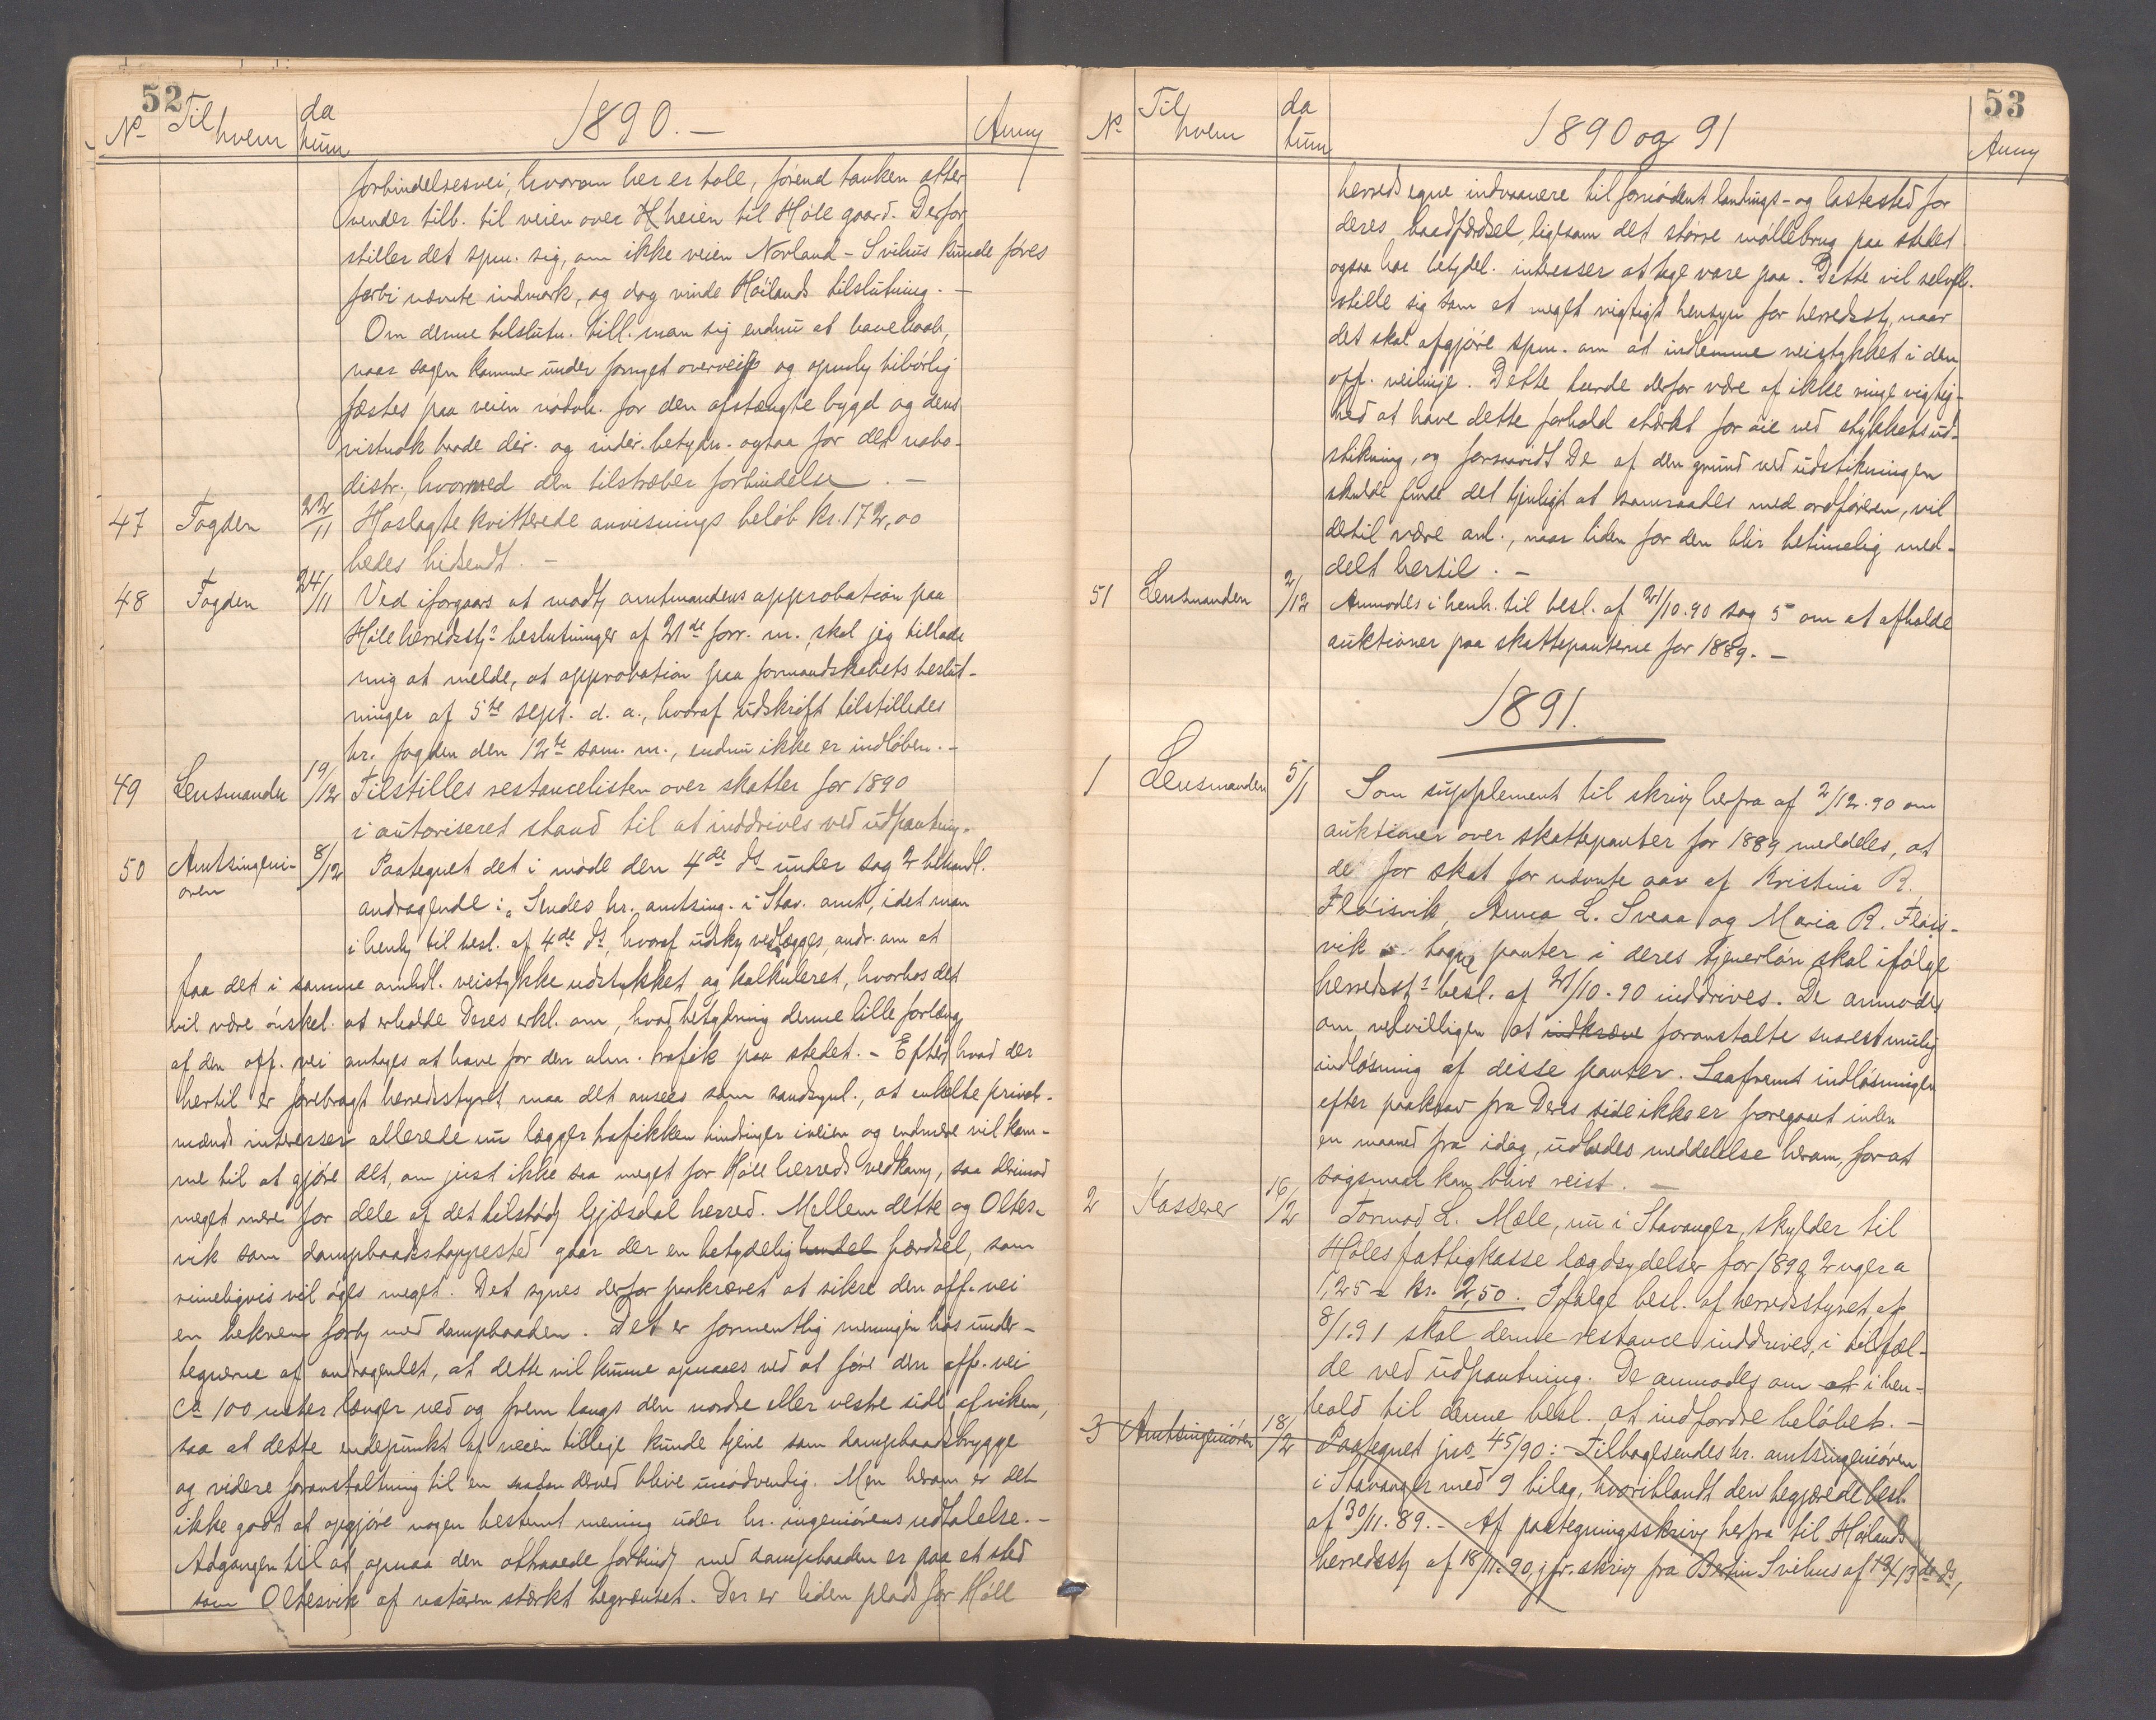 52
No Til hvem datum 1890.— Anm
forbindelsesvei, hvorom her er tale, förend tanken atter
vender tilb. til veien over Hheien til Höle gaard. Derfor
stiller det spm. sig, om ikke veien Norland - Svihus kunde föres
forbi nævnte indmark, og dog vinde Höilands tilslutning. —
Om denne tilslutn. till. man sig endnu at have haab,
naar sagen kommer under fornyet overveielse og opmhg tilbörlig
fæstes paa veiens nödv. for den afstængte bygd og dens
vistnok baade dir. og indir. betydn. ogsaa for det nabo-
distr., hvormed den tilstræber forbindelse. —
47 Fogden 22/11 Hoslagte kvitterede anvisnings beløb kr. 172,00
bedes hidsendt. —
48 Fogden 24/11 Ved iforgaars at modtg amtmandens approbation paa
Höle herredsstys beslutninger af 21de forr. m., skal jeg tillade
mig at melde, at approbation paa formandskabets beslut-
ninger af 5te sept. d. a., hvoraf udskrift tilstilledes
hr. fogden den 12te sam. m., endnu ikke er indlöben. —
49 Lensmanden 19/12 Tilstilles restancelisten over skatter for 1890
i autoriseret stand til at inddrives ved udpantning.
50 Amtsingeniören 8/12 Paategnet det i möde den 4de ds under sag 2 behandl.
andragende: „Sendes hr. amtsing. i Stav. amt, idet man
i henh til besl. af 4de ds, hvoraf udskr vedlægges, andr. om at
faa det i samme omhdl. veistykke udstykket og kalkuleret, hvorhos det
vil være önskel. at erholde Deres erkl. om, hvad betydning denne lille forlæng
af den off. vei antages at have for den alm. trafik paa stedet. — Efter hvad der
hertil er forebragt herredsstyret maa det ansees som sandsynl., at enkelte privat-
mænds interesser allerede nu lægger trafikken hindringer iveien og endmere vil kom-
me til at gjöre det, om just ikke saa meget for Höle herreds vedkom, saa derimod
meget mere for dele af det tilstödg Gjæsdal herred. Mellem dette og Oltes-
vik som dampbaadstoppested gaar der en betydelig handel færdsel, som
rimeligvis vil öges meget. Det synes derfor paakrævet at sikre den off. vei
en bekvem forbg med dampbaaden. Det er formentlig meningen hos under-
tegnerne af andragendet, at dette vil kunne opnaaes ved at före den off. vei
Ca 100 meter længer ned og frem langs den nordre eller vestre side af viken,
saa at dette endepunkt af veien tillige kunde tjene som dampbaadsbrygge
og videre foranstaltning til en saadan derved blive unödvendig. Men herom er det
ikke godt at opgjöre nogen bestemt mening uden hr. ingeniörens udtalelse. —
Adgangen til at opnaa den attraaede forbindg med dampbaaden er paa et sted
som Oltesvik af naturen stærkt begrænset. Der er liden plads for Höle
53
No Til hvem datum 1890 og 91 Anm
herreds egne indvaanere til fornödent landings- og lastested for
deres baadfærdsel, ligesom det större möllebrug paa stedet
ogsaa har betydel. interesser at tage vare paa. Dette vil selvföl.
stille sig som et meget vigtigt hensyn for herredsst, naar
det skal afgjöre spm. om at indlemme veistykket i den
off. veilinje. Dette turde derfor være af ikke ringe vigtig-
hed at have dette forhold stærkt for öie ved stykkets ud-
stikning, og forsaavidt De af den grund ved udstikningen
skulde finde det tjenligt at samraades med ordföreren, vil
dertil være anl., naar tiden for den blir betimelig med-
delt hertil. —
51 Lensmanden 2/12 Anmodes i henh. til besl. af 21/10.90 sag 5 om at afholde
auktioner paa skattepanterne for 1889. —
1891.
1 Lensmanden 5/1 Som supplement til skriv herfra af 2/12.90 om
auktioner over skattepanter for 1889 meddeles, at
de for skat for nævnte aar af Kristina R.
Flöisvik, Anna L. Sveaa og Maria R. Flöis-
vik tagne panter i deres tjenerlön skal ifölge
herredssts besl. af 21/10.90 inddrives. De anmodes
om velvilligen at indkræve foranstalte snarest mulig
indlösning af disse panter. Saafremt indlösningen
efter paakrav fra Deres side ikke er foregaaet inden
en maaned fra idag, udbedes meddelelse herom, forat
sögsmaal kan blive reist. —
2 Kasserer 16/2 Tormod L. Mæle, nu i Stavanger, skylder til
Höles fattigkasse lægdsydelser for 1890 2 uger a
1,25 = kr. 2,50. Ifölge besl. af herredsstyret af
8/1.91 skal denne restance inddrives, i tilfæl-
de ved udpantning. De anmodes om at i hen-
hold til denne besl. at indfordre belöbet. —
3 Amtsingeniören 18/2 Paategnet jno 45/90: Tilbagesendes hr. amtsingeniören
i Stavanger med 9 bilag, hvoriblandt den begjærede besl.
af 30/11.89. — Af paategningsskriv herfra til Höilands
herredsst af 18/11.90, jfr. skriv fra Bertin Svihus af 13de ds,